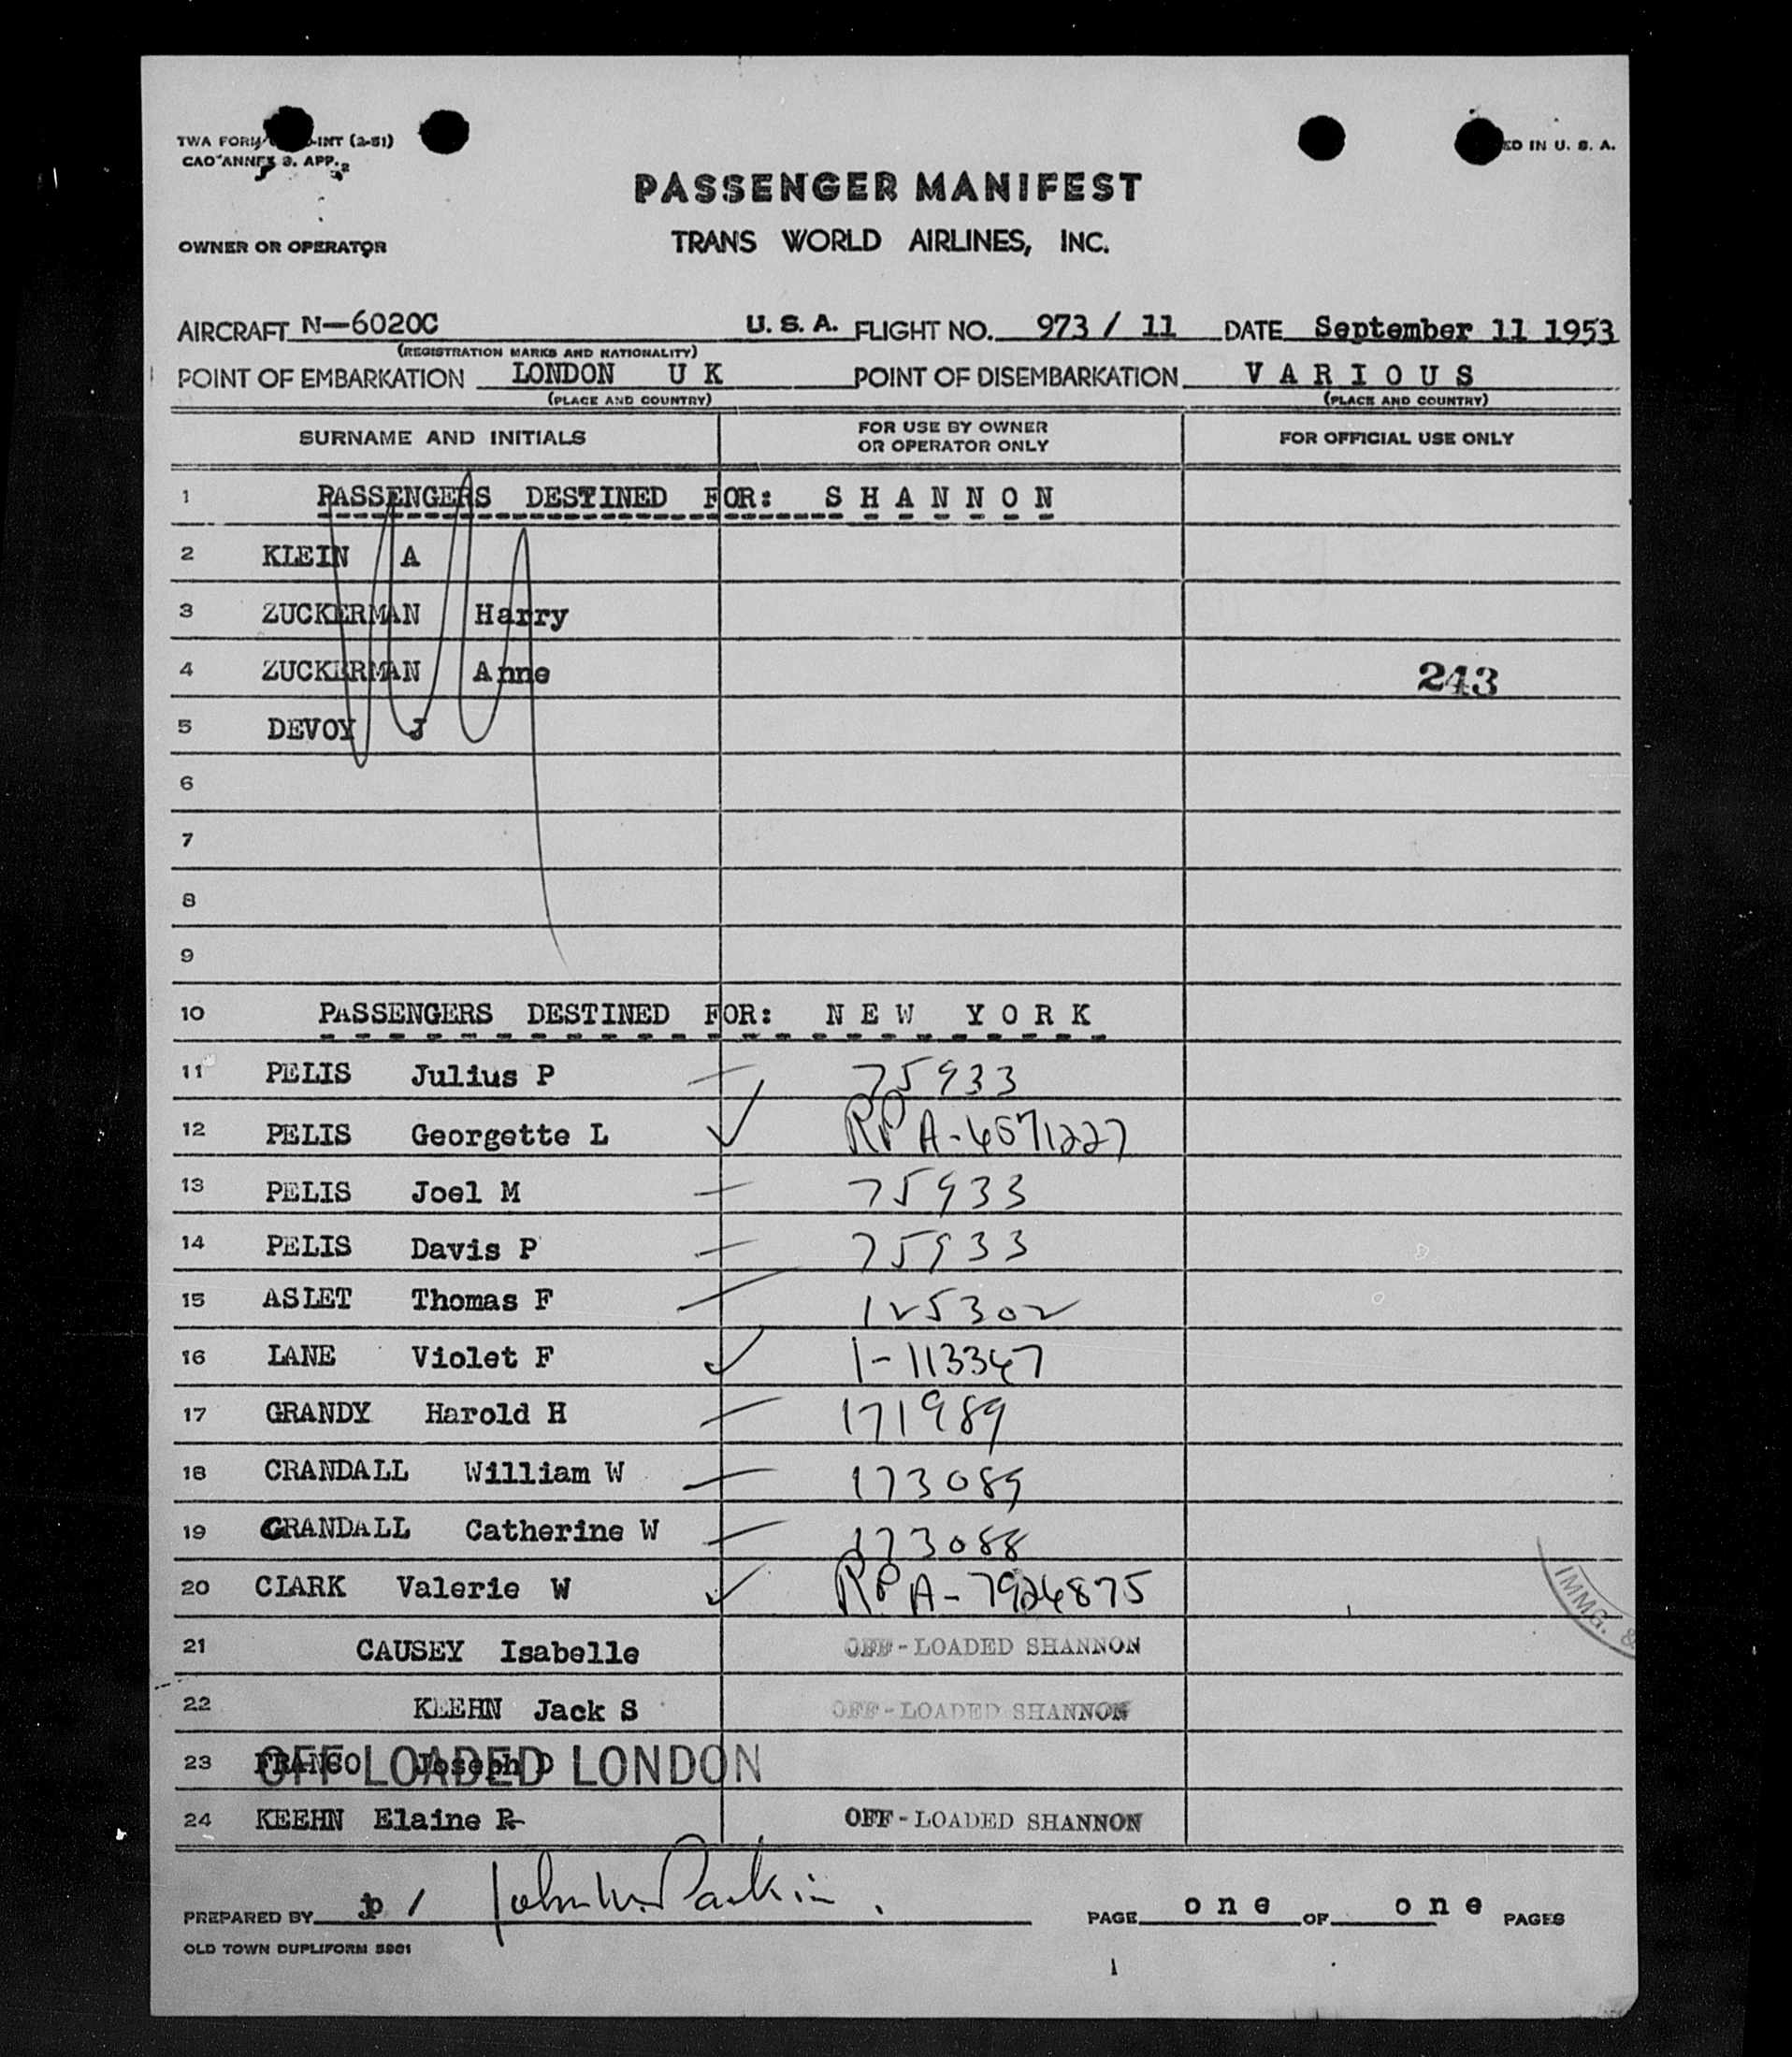 TWA FORM -INT (2-51)
CAO ANNEX 9. APP.
ED IN U. S. A.
PASSENGER MANIFEST
OWNER OR OPERATOR TRANS WORLD AIRLINES, INC.
AIRCRAFT N-6020C U. S. A. FLIGHT NO. 973 / 11 DATE September 11 1953
(REGISTRATION MARKS AND NATIONALITY)
POINT OF EMBARKATION LONDON U K POINT OF DISEMBARKATION V A R I O U S
(PLACE AND COUNTRY) (PLACE AND COUNTRY)
SURNAME AND INITIALS FOR USE BY OWNER OR OPERATOR ONLY FOR OFFICIAL USE ONLY
1 PASSENGERS DESTINED FOR: S H A N N O N
2 KLEIN A
3 ZUCKERMAN Harry
4 ZUCKERMAN Anne 243
5 DEVOY J
6
7
8
9
10 PASSENGERS DESTINED FOR: N E W Y O R K
11 PELIS Julius P 75933
12 PELIS Georgette L RP A-4571227
13 PELIS Joel M 75933
14 PELIS Davis P 75933
15 ASLET Thomas F 125302
16 LANE Violet F 1-113347
17 GRANDY Harold H 171989
18 CRANDALL William W 173089
19 CRANDALL Catherine W 173088
20 CLARK Valerie W RP A-7924875
IMMG. &
21 CAUSEY Isabelle OFF-LOADED SHANNON
22 KEEHN Jack S OFF-LOADED SHANNON
23 FRANCO Joseph D OFF LOADED LONDON
24 KEEHN Elaine R OFF-LOADED SHANNON
PREPARED BY jp / John W. Parkin. PAGE o n e OF o n e PAGES
OLD TOWN DUPLIFORM